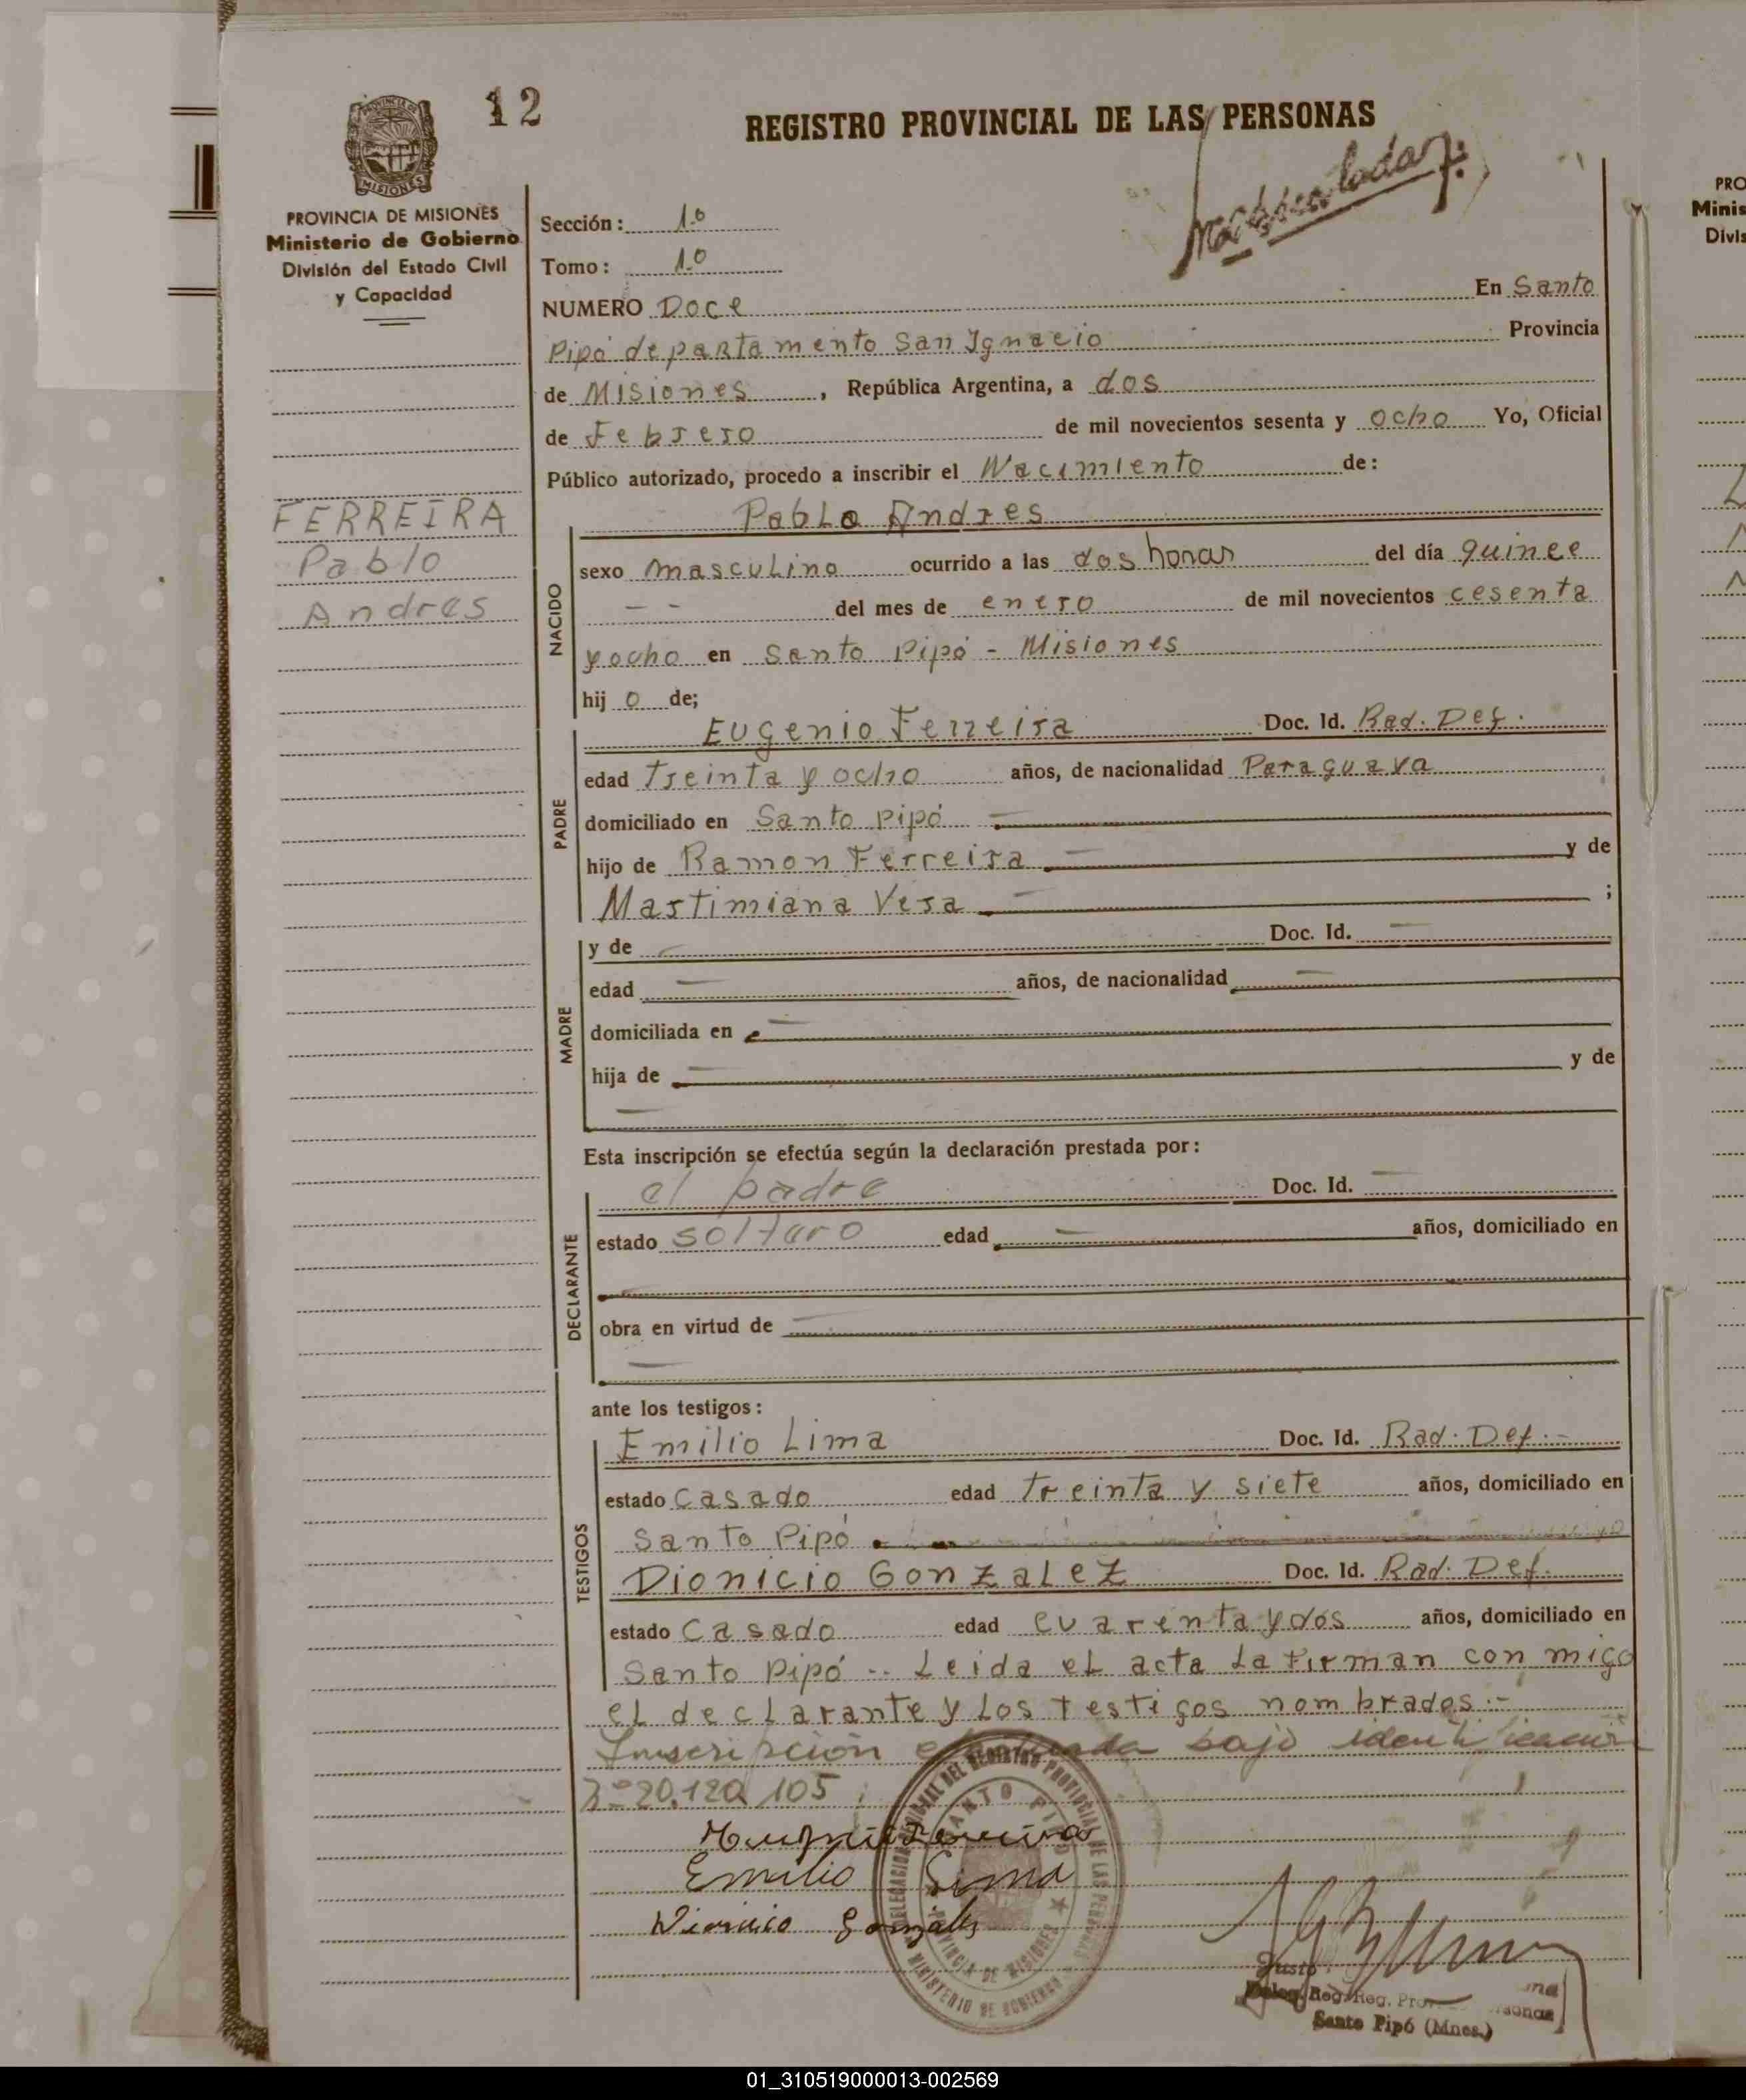 12
REGISTRO PROVINCIAL DE LAS PERSONAS
PROVINCIA DE MISIONES
Ministerio de Gobierno
División del Estado Civil
y Capacidad
FERREIRA
Pablo
Andres
Sección: 1.o
Tomo: 1.o
NUMERO Doce En Santo
Pipó departamento San Ignacio Provincia
de Misiones, República Argentina, a dos
de Febrero de mil novecientos sesenta y ocho Yo, Oficial
Público autorizado, procedo a inscribir el Nacimiento de:
Pablo Andres
NACIDO
sexo masculino ocurrido a las dos horas del día quince
-- del mes de enero de mil novecientos cesenta
y ocho en Santo Pipó - Misiones
hij o de;
PADRE
Eugenio Ferreira Doc. Id. Rad. Def.
edad treinta y ocho años, de nacionalidad Paraguaya
domiciliado en Santo Pipó —
hijo de Ramon Ferreira — y de
Martimiana Vera — ;
MADRE
y de — Doc. Id. —
edad — años, de nacionalidad —
domiciliada en —
hija de — y de
—
Esta inscripción se efectúa según la declaración prestada por:
DECLARANTE
el padre Doc. Id. —
estado soltero edad — años, domiciliado en
—
obra en virtud de —
—
ante los testigos:
TESTIGOS
Emilio Lima Doc. Id. Rad. Def.-
estado Casado edad treinta y siete años, domiciliado en
Santo Pipó
Dionicio Gonzalez Doc. Id. Rad. Def.
estado Casado edad cuarenta y dos años, domiciliado en
Santo Pipó -- Leida el acta la firman con migo
el declarante y los testigos nombrados.-
Inscripción bajo identificación
Nº 20.120.105
Emilio Lima
Dionicio Gonzalez
SANTO PIPÓ
PROVINCIA DE MISIONES
MINISTERIO DE GOBIERNO
Justo
Santo Pipó (Mnes.)
PRO
Minis
Divis
01_310519000013-002569